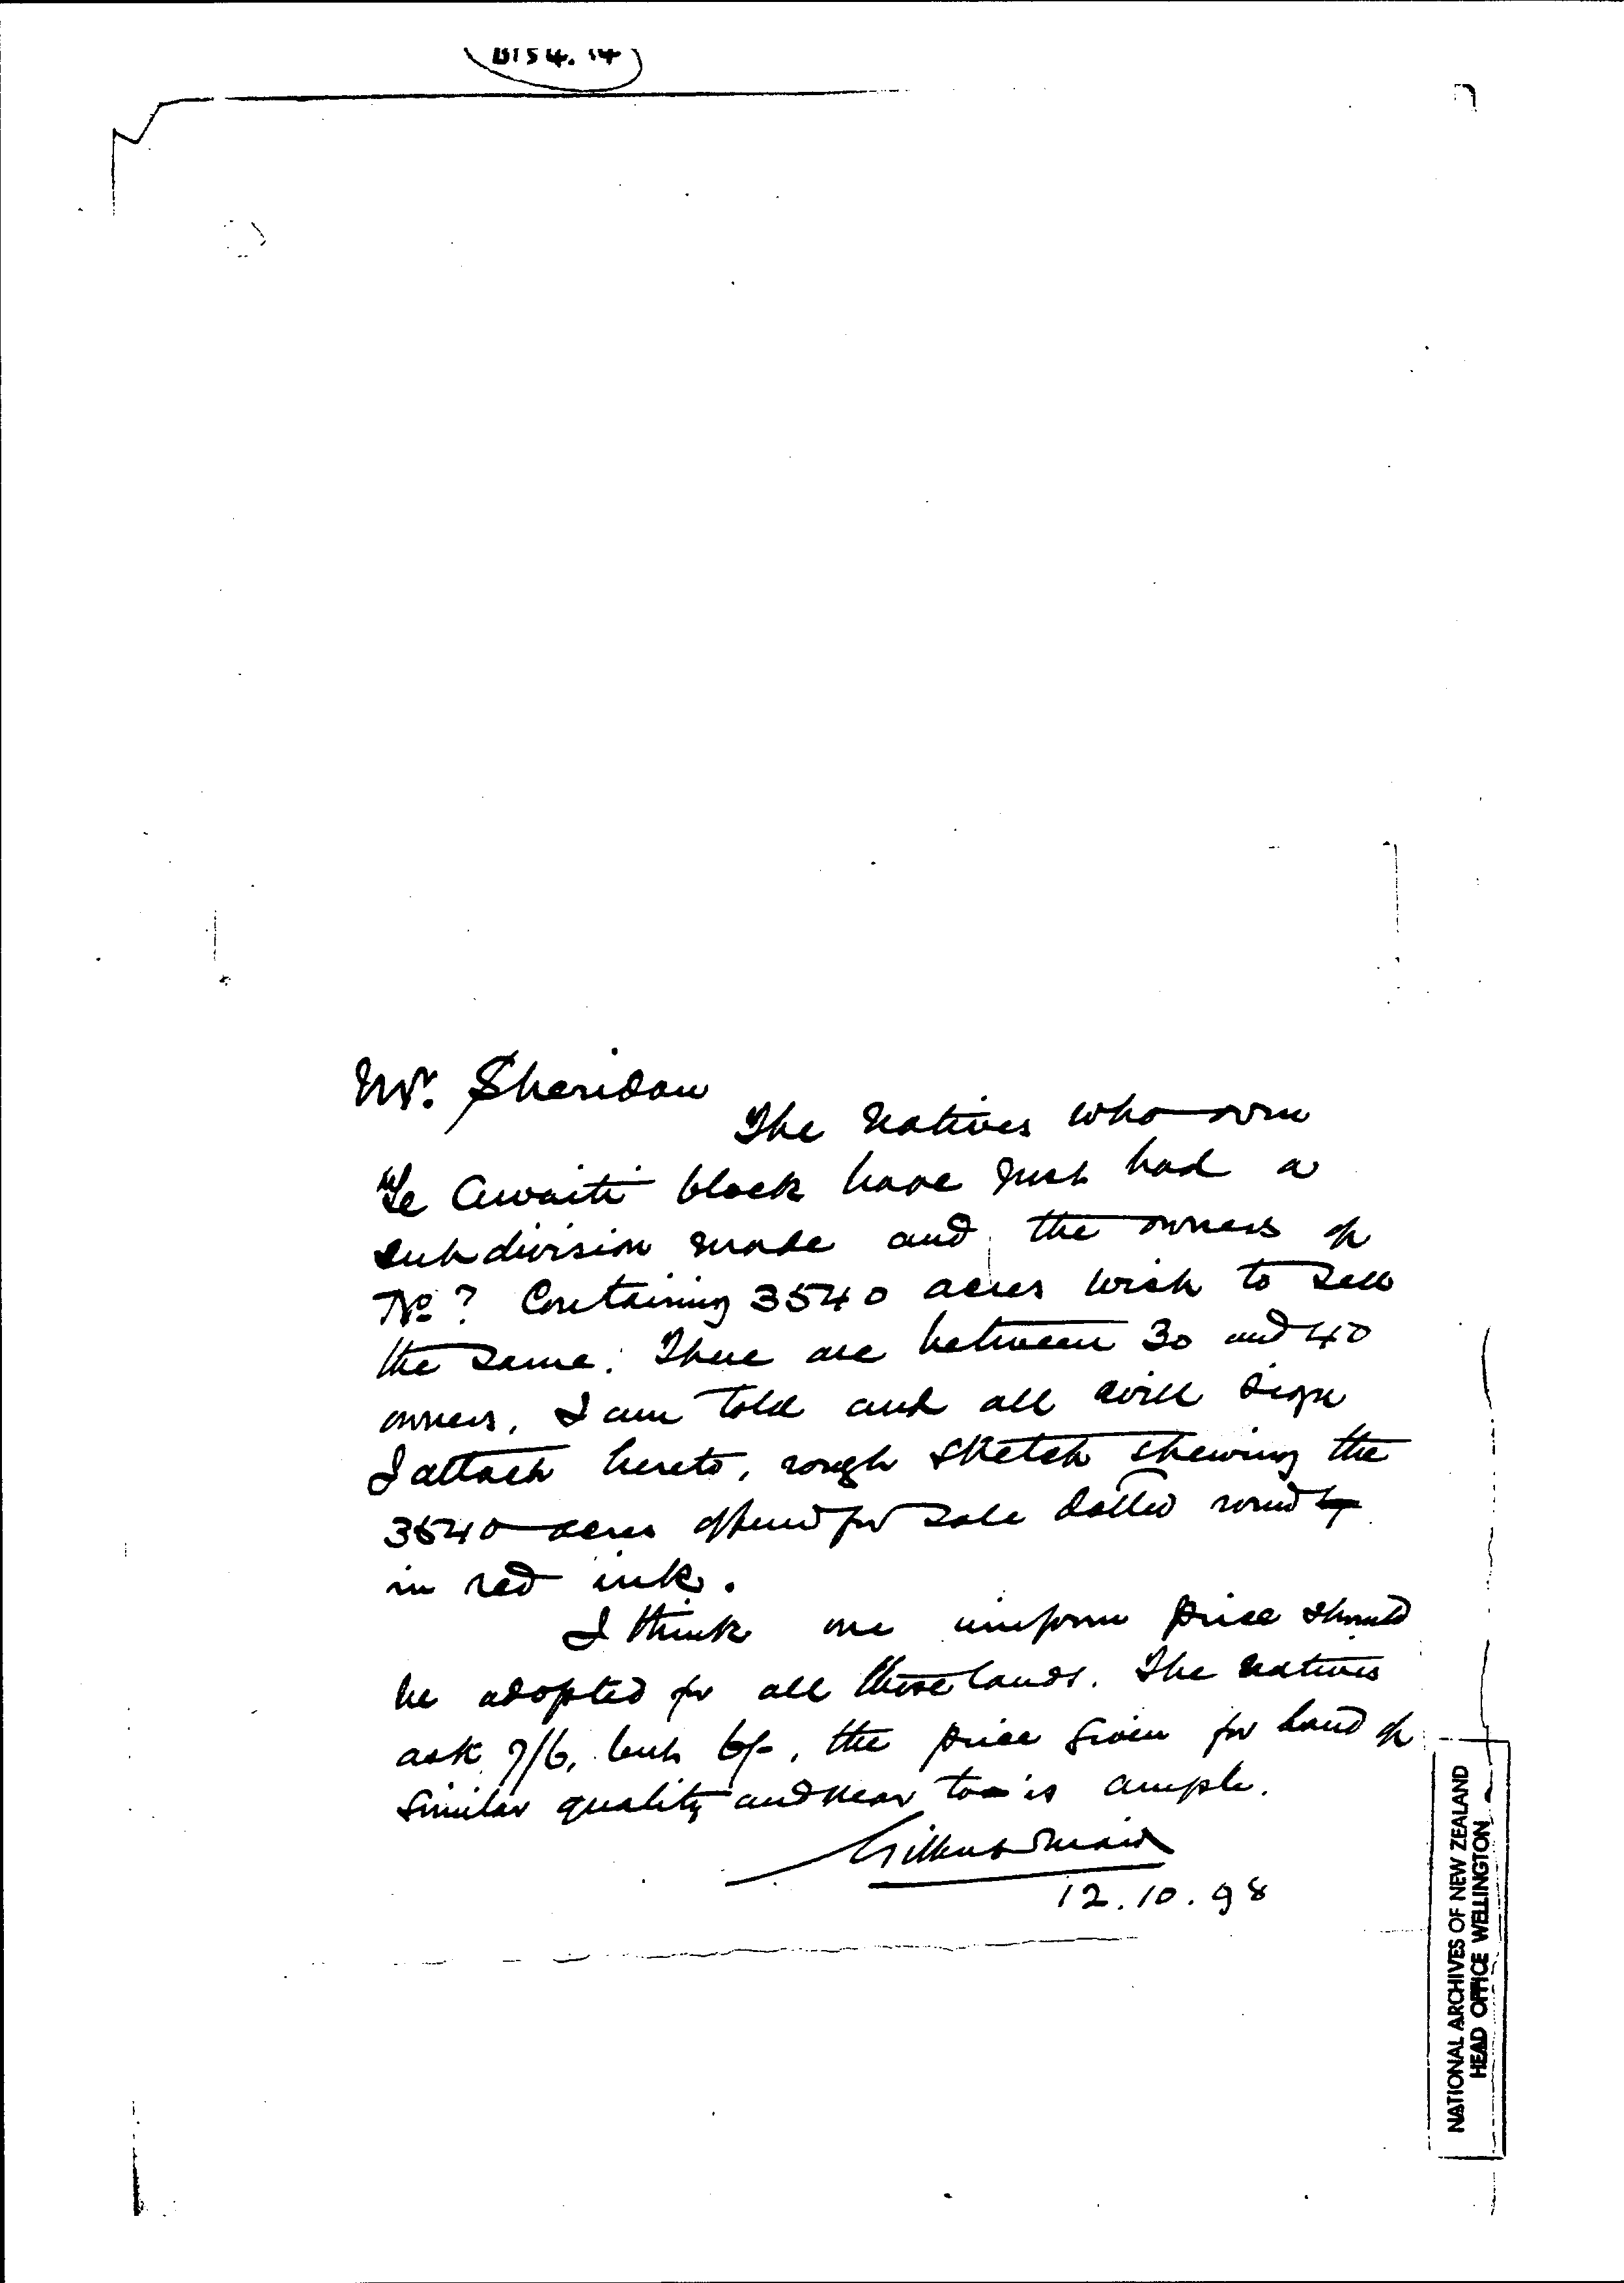 B154.14
Mr. Sheridan
The Natives who own
Te Awaiti block have just had a
subdivision made and the owners of
No ? Containing 3540 acres wish to sell
the same. There are between 30 and 40
owners, I am told and all will sign
I attach hereto, rough sketch shewing the
3540 acres offered for sale dotted round
in red ink.
I think one uniform price should
be adopted for all these lands. The Natives
ask 7/6, but 6/-, the price given for land of
similar quality and near to is ample.
Gilbert Mair
12.10.98
NATIONAL ARCHIVES OF NEW ZEALAND
HEAD OFFICE WELLINGTON